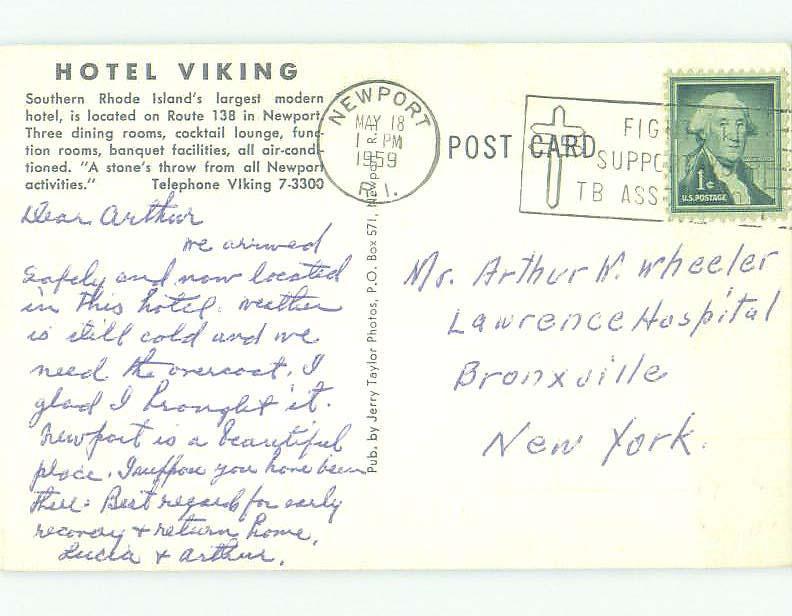 HOTEL VIKING
Southern Rhode Island's largest modern
hotel, is located on Route 138 in Newport
Three dining rooms, cocktail lounge, func-
tion rooms, banquet facilities, all air-condi-
tioned. "A stone's throw from all Newport
activities." Telephone VIking 7-3300
Dear Arthur
We arrived
safely and now located
in this hotel. Weather
is still cold and we
need the overcoat. I
glad I brought it.
Newport is a beautiful
place. I suppose you have been
there. Best regards for early
recovery & return home.
Lucia & Arthur.
Pub. by Jerry Taylor Photos, P.O. Box 571, Newport R.I.
NEWPORT
MAY 18
1 - PM
1959
R. I.
POST CARD
FIG
SUPPO
TB ASS
1¢
U.S. POSTAGE
Mr. Arthur W. Wheeler
Lawrence Hospital
Bronxville
New York.